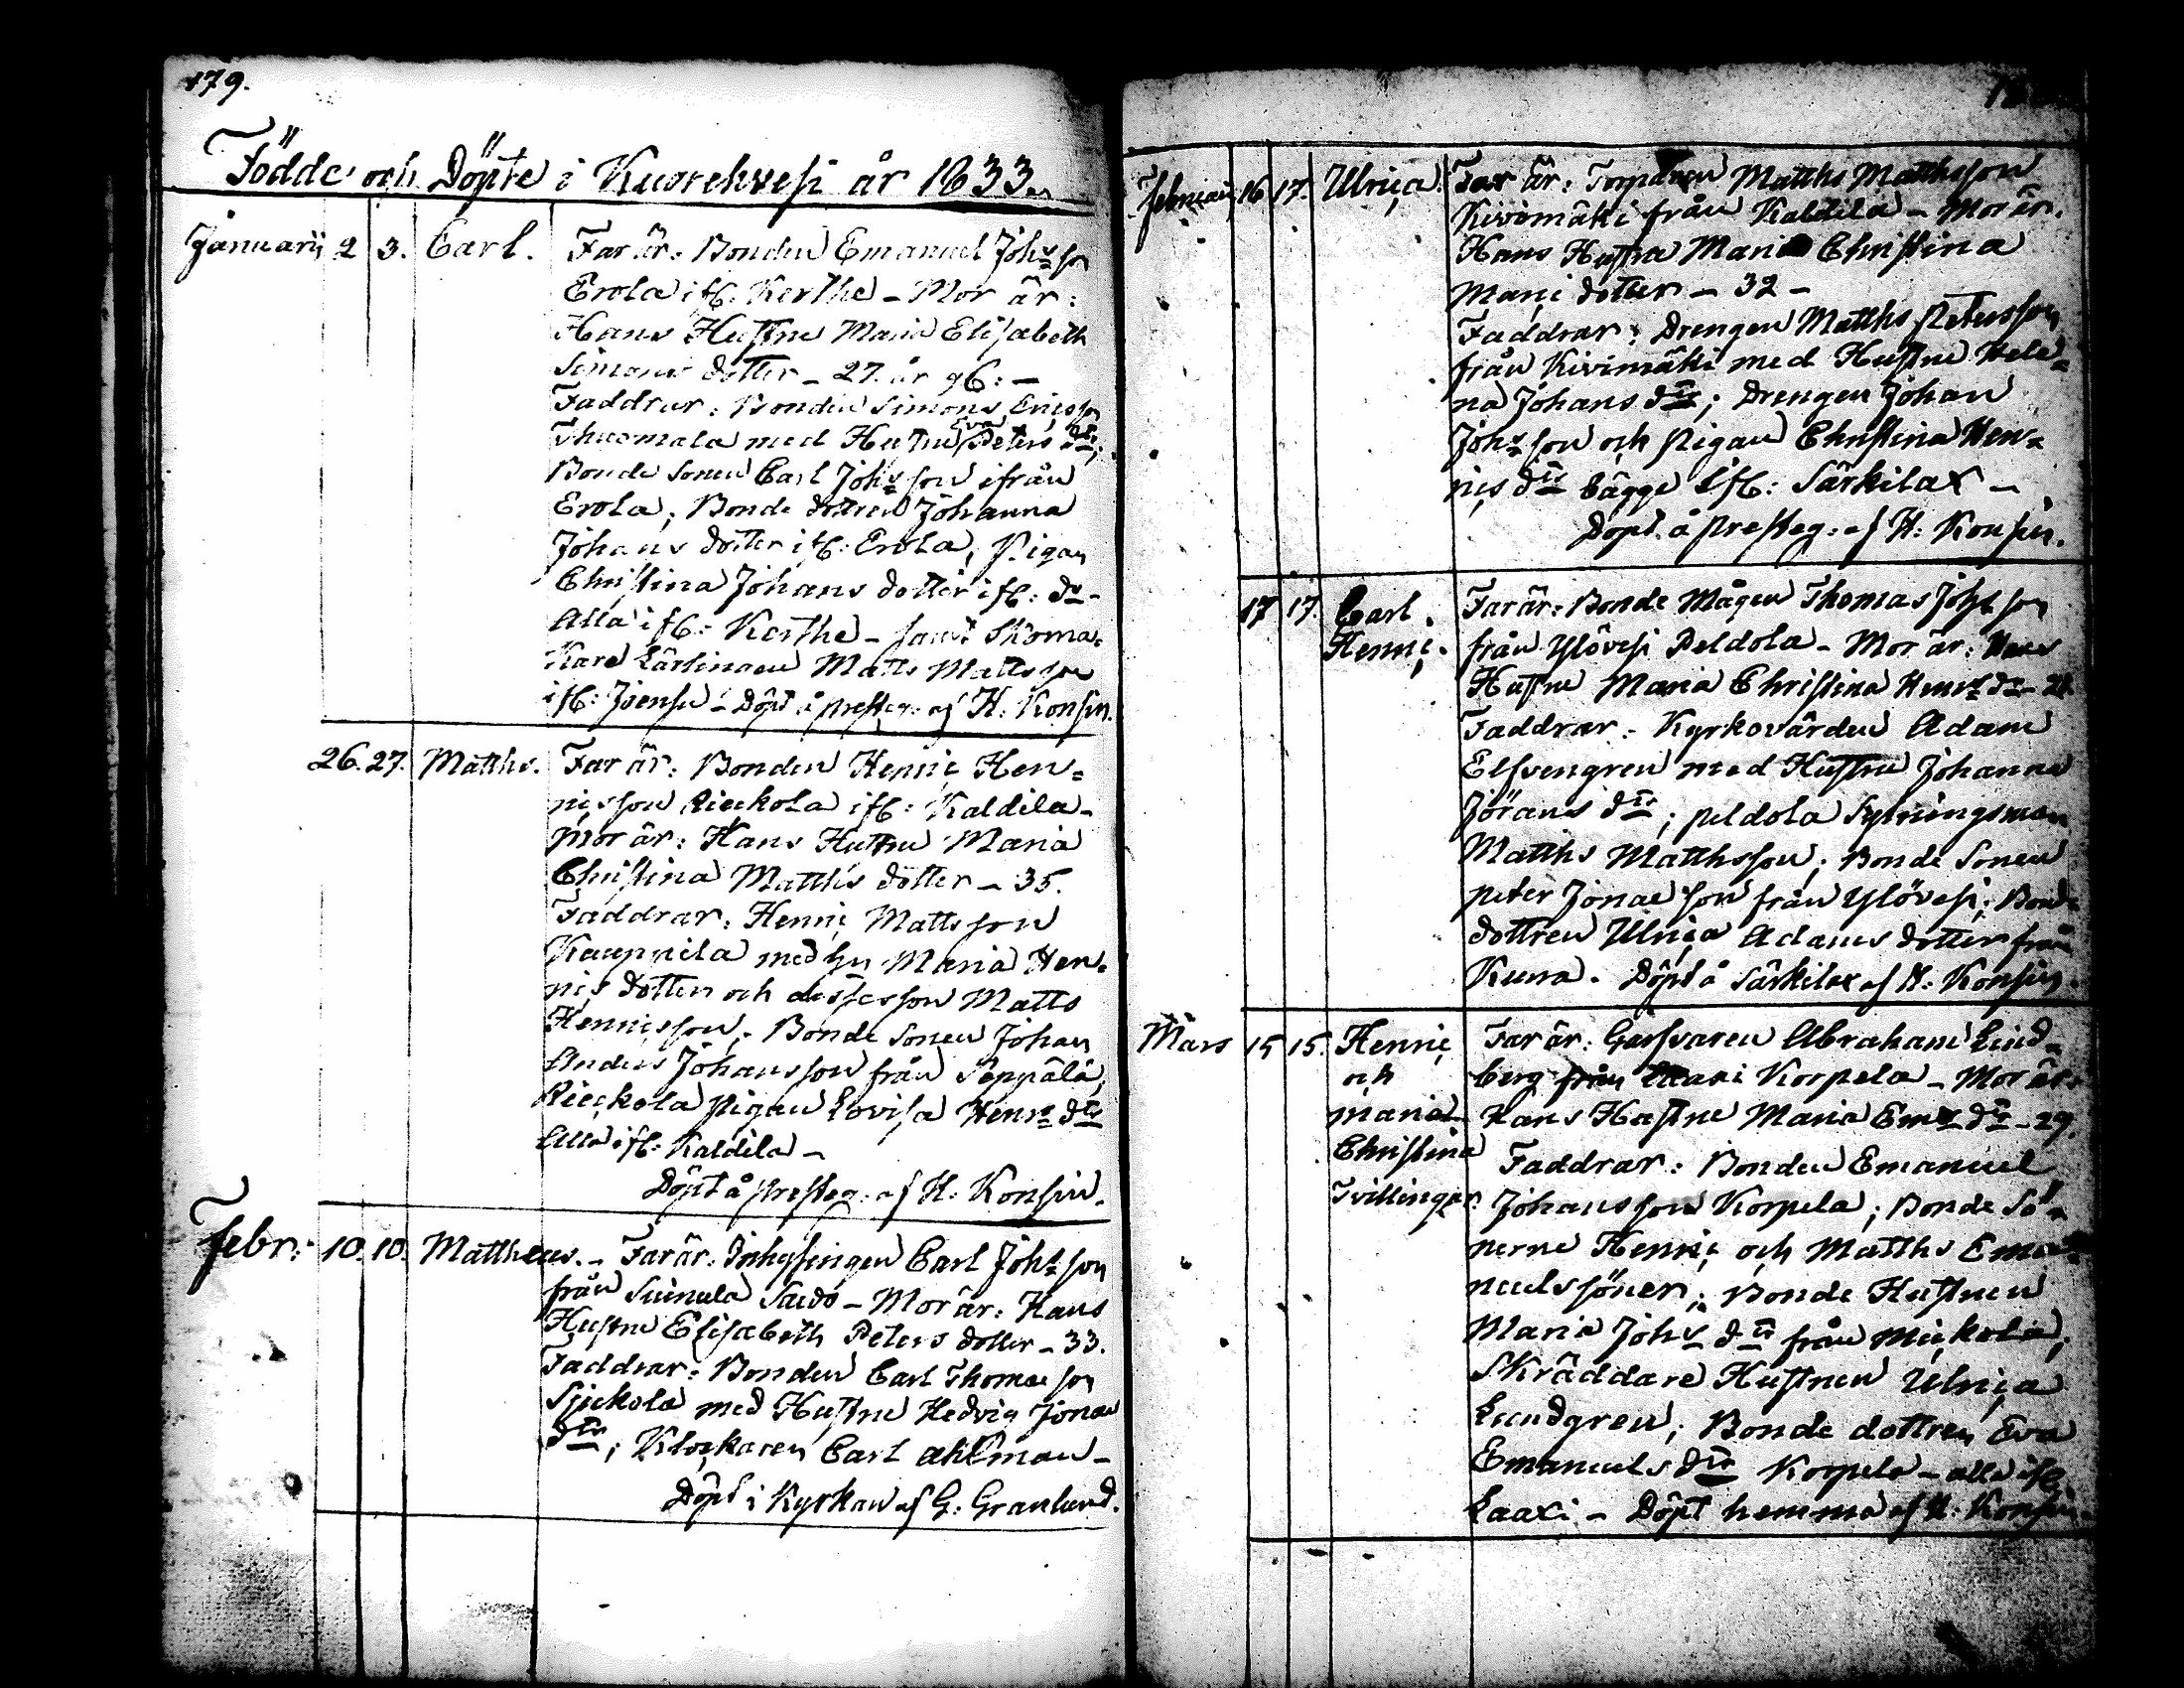 179.
Födde och Döpte i Kuorehvesi år 1833.
Januarii 2 3. Carl. Far är: Bonden Emanuel Johs son
Erola ifr. Kerthe - Mor är:
Hans Hustru Maria Elisabeth
Simons dotter - 27. år g6: -
Faddrar: Bonden Simons Ericsson
Thuomala med Hustru Eva Peters dtr;
Bonde Sonen Carl Johs son ifrån
Erola; Bonde dottren Johanna
Johans dotter ifr: Erola, Pigan
Christina Johans dotter ifr: do -
Alla ifr: Kerthe - samt Skoma-
kare Lärlingen Matts Mattsson
ifr: Joensu - Döpt å presteg: af H: Konsin.
26. 27. Matths. Far är: Bonden Henric Hen-
ricsson Rieckola ifr: Kaldila -
Mor är: Hans Hustru Maria
Christina Matths dotter - 35.
Faddrar: Henric Mattsson
Kauppila med Hu Maria Hen-
rics dotter och desses son Matts
Henricsson; Bonde Sonen Johan
Anders Johansson från Seppälä,
Rieckola pigan Lovisa Henrs dtr
Alla ifr: Kaldila -
Döpt å presteg: af H: Konsin.
Febr: 10. 10. Mattheus. - Far är: Inhysingen Carl Johs son
från Suinula Savo - Mor är: Hans
Hustru Elisabeth Peters dotter - 33.
Faddrar: Bonden Carl Thomae son
Sjukola med Hustru Hedvig Jonae
dtr; Klockaren Carl Ahlman -
Döpt i Kyrkan af G: Granlund.
Februari 16 17. Ulrica. Far är: Torparen Matths Matthsson
Kivimäki från Kaldila - Mor är.
Hans Hustru Maria Christina
Marc dotter - 32 -
Faddrar: Drengen Matths Petersson
från Kivimäki med Hustru Hele-
na Johans dtr; Drengen Johan
Johs son och Pigan Christina Hen-
rics dtr bägge ifr: Särkilax -
Döpt å presteg: af H: Konsin.
17 17. Carl Far är: Bonde Mågen Thomas Johs son
Henric. från Ylövesi Peldola - Mor är: Hans
Hustru Maria Christina Henrs dr -
Faddrar: Kyrkovärden Adam
Elfvengren med Hustru Johanna
Jörans dtr; Peldola Sytningsman
Matths Matthsson; Bonde Sonen
Peter Jonae son från Ylövesi; Bonde
dottren Ulrica Adams dotter från
Kuna. Döpt å Särkilax af H: Konsin.
Mars 15 15. Henric Far är: Garfvaren Abraham Lind-
och berg från Laaxi Korpela - Mor är:
Maria Hans Hustru Maria Ems dtr - 29.
Christina Faddrar: Bonden Emanuel
Tvillingar. Johansson Korpela; Bonde Sö-
nerne Henric och Matths Ema-
nuelssöner; Bonde Hustrun
Maria Johs dtr från Mickola;
Skräddare Hustrun Ulrica
Lundgren; Bonde dottren Eva
Emanuels dtr Korpela - alla ifr
Laaxi - Döpt hemma af H: Konsin.